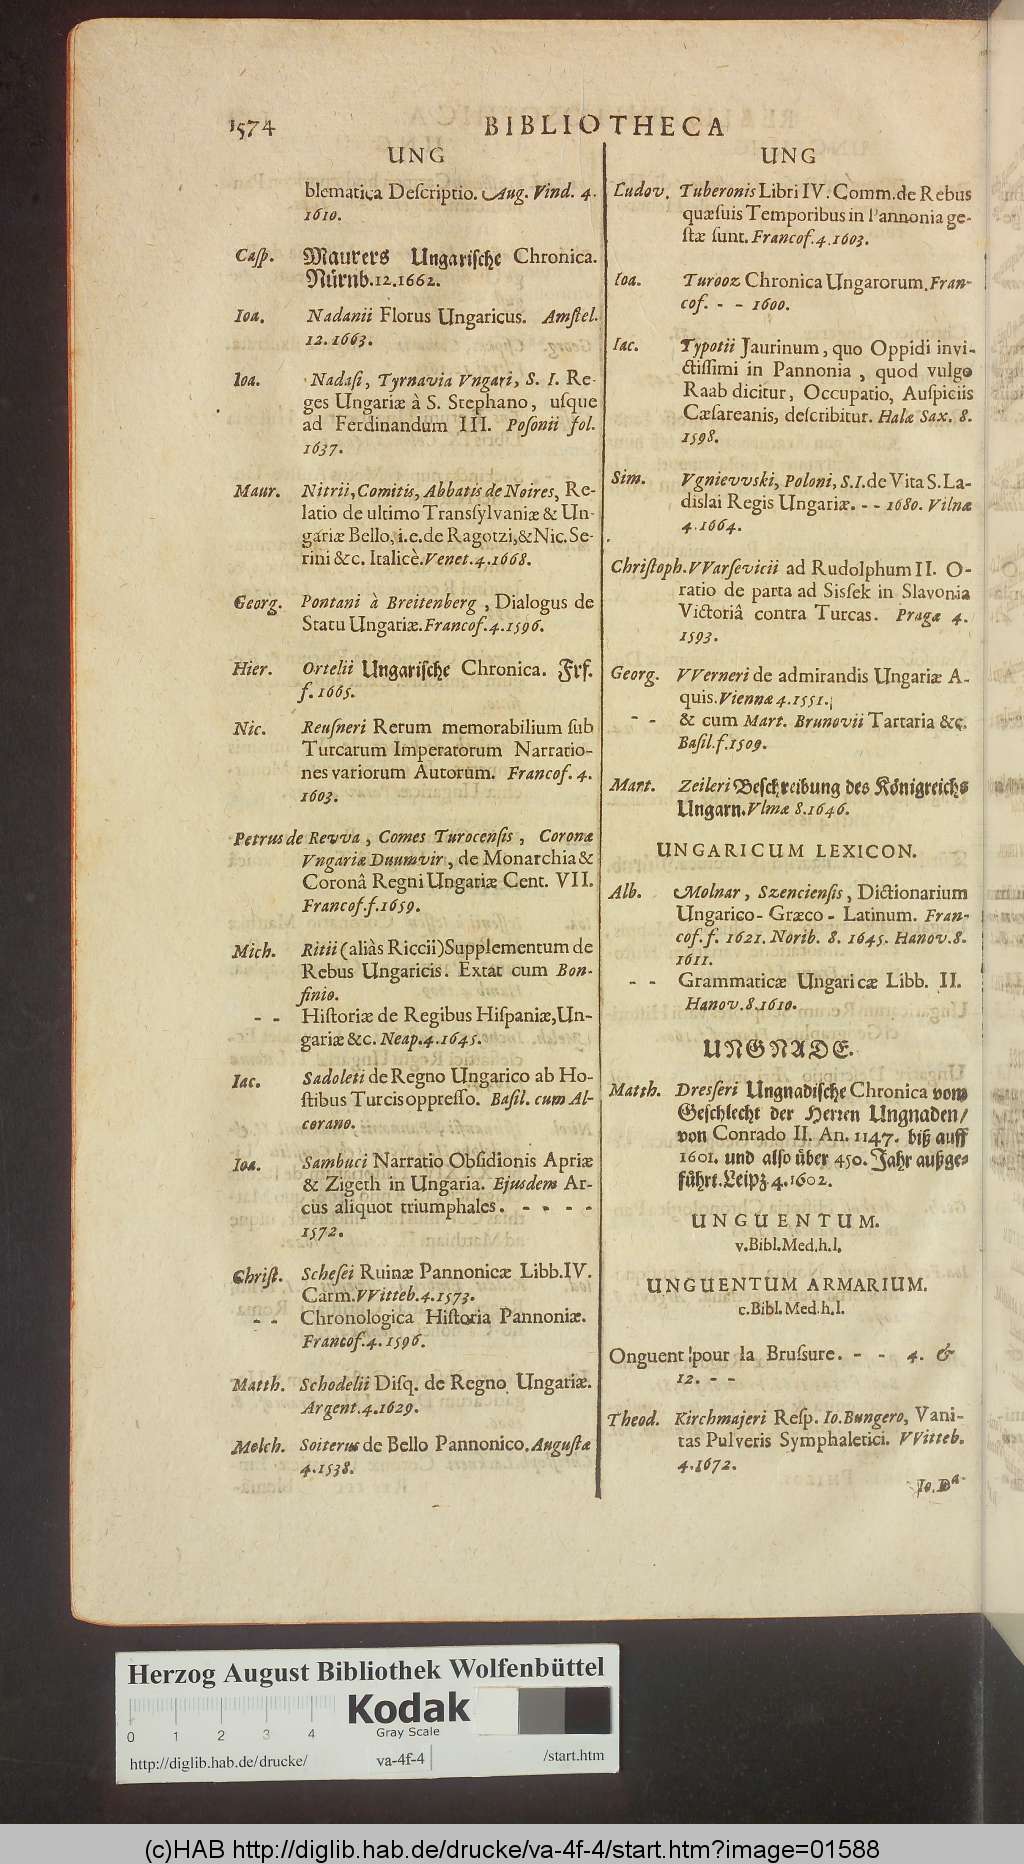 1574
BIBLIOTHECA
UNG
blematica Deſcriptio. Aug. Vind. 4.
1610.
Caſp. Maurers Ungariſche Chronica.
Nürnb. 12. 1662.
Ioa. Nadanii Florus Ungaricus. Amſtel.
12. 1663.
Ioa. Nadaſi, Tyrnavia Vngari, S. I. Re-
ges Ungariæ à S. Stephano, uſque
ad Ferdinandum III. Poſonii fol.
1637.
Maur. Nitrii, Comitis, Abbatis de Noires, Re-
latio de ultimo Transſylvaniæ & Un-
gariæ Bello, i.e. de Ragotzi, & Nic. Se-
rini &c. Italicè. Venet. 4. 1668.
Georg. Pontani à Breitenberg, Dialogus de
Statu Ungariæ. Francof. 4. 1596.
Hier. Ortelii Ungariſche Chronica. Frf.
f. 1665.
Nic. Reuſneri Rerum memorabilium ſub
Turcarum Imperatorum Narratio-
nes variorum Autorum. Francof. 4.
1603.
Petrus de Revva, Comes Turocenſis, Coronæ
Vngariæ Duumvir, de Monarchia &
Coronâ Regni Ungariæ Cent. VII.
Francof. f. 1659.
Mich. Ritii (aliàs Riccii) Supplementum de
Rebus Ungaricis. Extat cum Bon-
finio.
- - Hiſtoriæ de Regibus Hiſpaniæ, Un-
gariæ &c. Neap. 4. 1645.
Iac. Sadoleti de Regno Ungarico ab Ho-
ſtibus Turcis oppreſſo. Baſil. cum Al-
corano.
Ioa. Sambuci Narratio Obſidionis Apriæ
& Zigeth in Ungaria. Ejusdem Ar-
cus aliquot triumphales. - - - -
1572.
Chriſt. Scheſei Ruinæ Pannonicæ Libb. IV.
Carm. VVitteb. 4. 1573.
- - Chronologica Hiſtoria Pannoniæ.
Francof. 4. 1596.
Matth. Schodelii Diſq. de Regno Ungariæ.
Argent. 4. 1629.
Melch. Soiterus de Bello Pannonico. Auguſtæ
4. 1538.
UNG
Ludov. Tuberonis Libri IV. Comm. de Rebus
quæ ſuis Temporibus in Pannonia ge-
ſtæ ſunt. Francof. 4. 1603.
Ioa. Turooz Chronica Ungarorum. Fran-
cof. - - 1600.
Iac. Typotii Jaurinum, quo Oppidi invi-
ctiſſimi in Pannonia, quod vulgo
Raab dicitur, Occupatio, Auſpiciis
Cæſareanis, deſcribitur. Halæ Sax. 8.
1598.
Sim. Vgnievvski, Poloni, S. I. de Vita S. La-
dislai Regis Ungariæ. - - 1680. Vilnæ
4. 1664.
Chriſtoph. VVarſevicii ad Rudolphum II. O-
ratio de parta ad Sisſek in Slavonia
Victoriâ contra Turcas. Pragæ 4.
1593.
Georg. VVerneri de admirandis Ungariæ A-
quis. Viennæ 4. 1551.
- - & cum Mart. Brunovii Tartaria &c.
Baſil. f. 1509.
Mart. Zeileri Beſchreibung des Königreichs
Ungarn. Vlmæ 8. 1646.
UNGARICUM LEXICON.
Alb. Molnar, Szencienſis, Dictionarium
Ungarico-Græco-Latinum. Fran-
cof. f. 1621. Norib. 8. 1645. Hanov. 8.
1611.
- - Grammaticæ Ungaricæ Libb. II.
Hanov. 8. 1610.
UNGNADE.
Matth. Dreſſeri Ungnadiſche Chronica vom
Geſchlecht der Herren Ungnaden/
von Conrado II. An. 1147. biß auff
1601. und alſo über 450. Jahr außge-
führt. Leipz. 4. 1602.
UNGUENTUM.
v. Bibl. Med. h. l.
UNGUENTUM ARMARIUM.
c. Bibl. Med. h. l.
Onguent pour la Bruſsure. - - 4. &
12. - -
Theod. Kirchmajeri Reſp. Io. Bungero, Vani-
tas Pulveris Symphaletici. VVitteb.
4. 1672.
Io. Da-
Herzog August Bibliothek Wolfenbüttel
Kodak
Gray Scale
0 1 2 3 4
http://diglib.hab.de/drucke/ va-4f-4 /start.htm
(c)HAB http://diglib.hab.de/drucke/va-4f-4/start.htm?image=01588